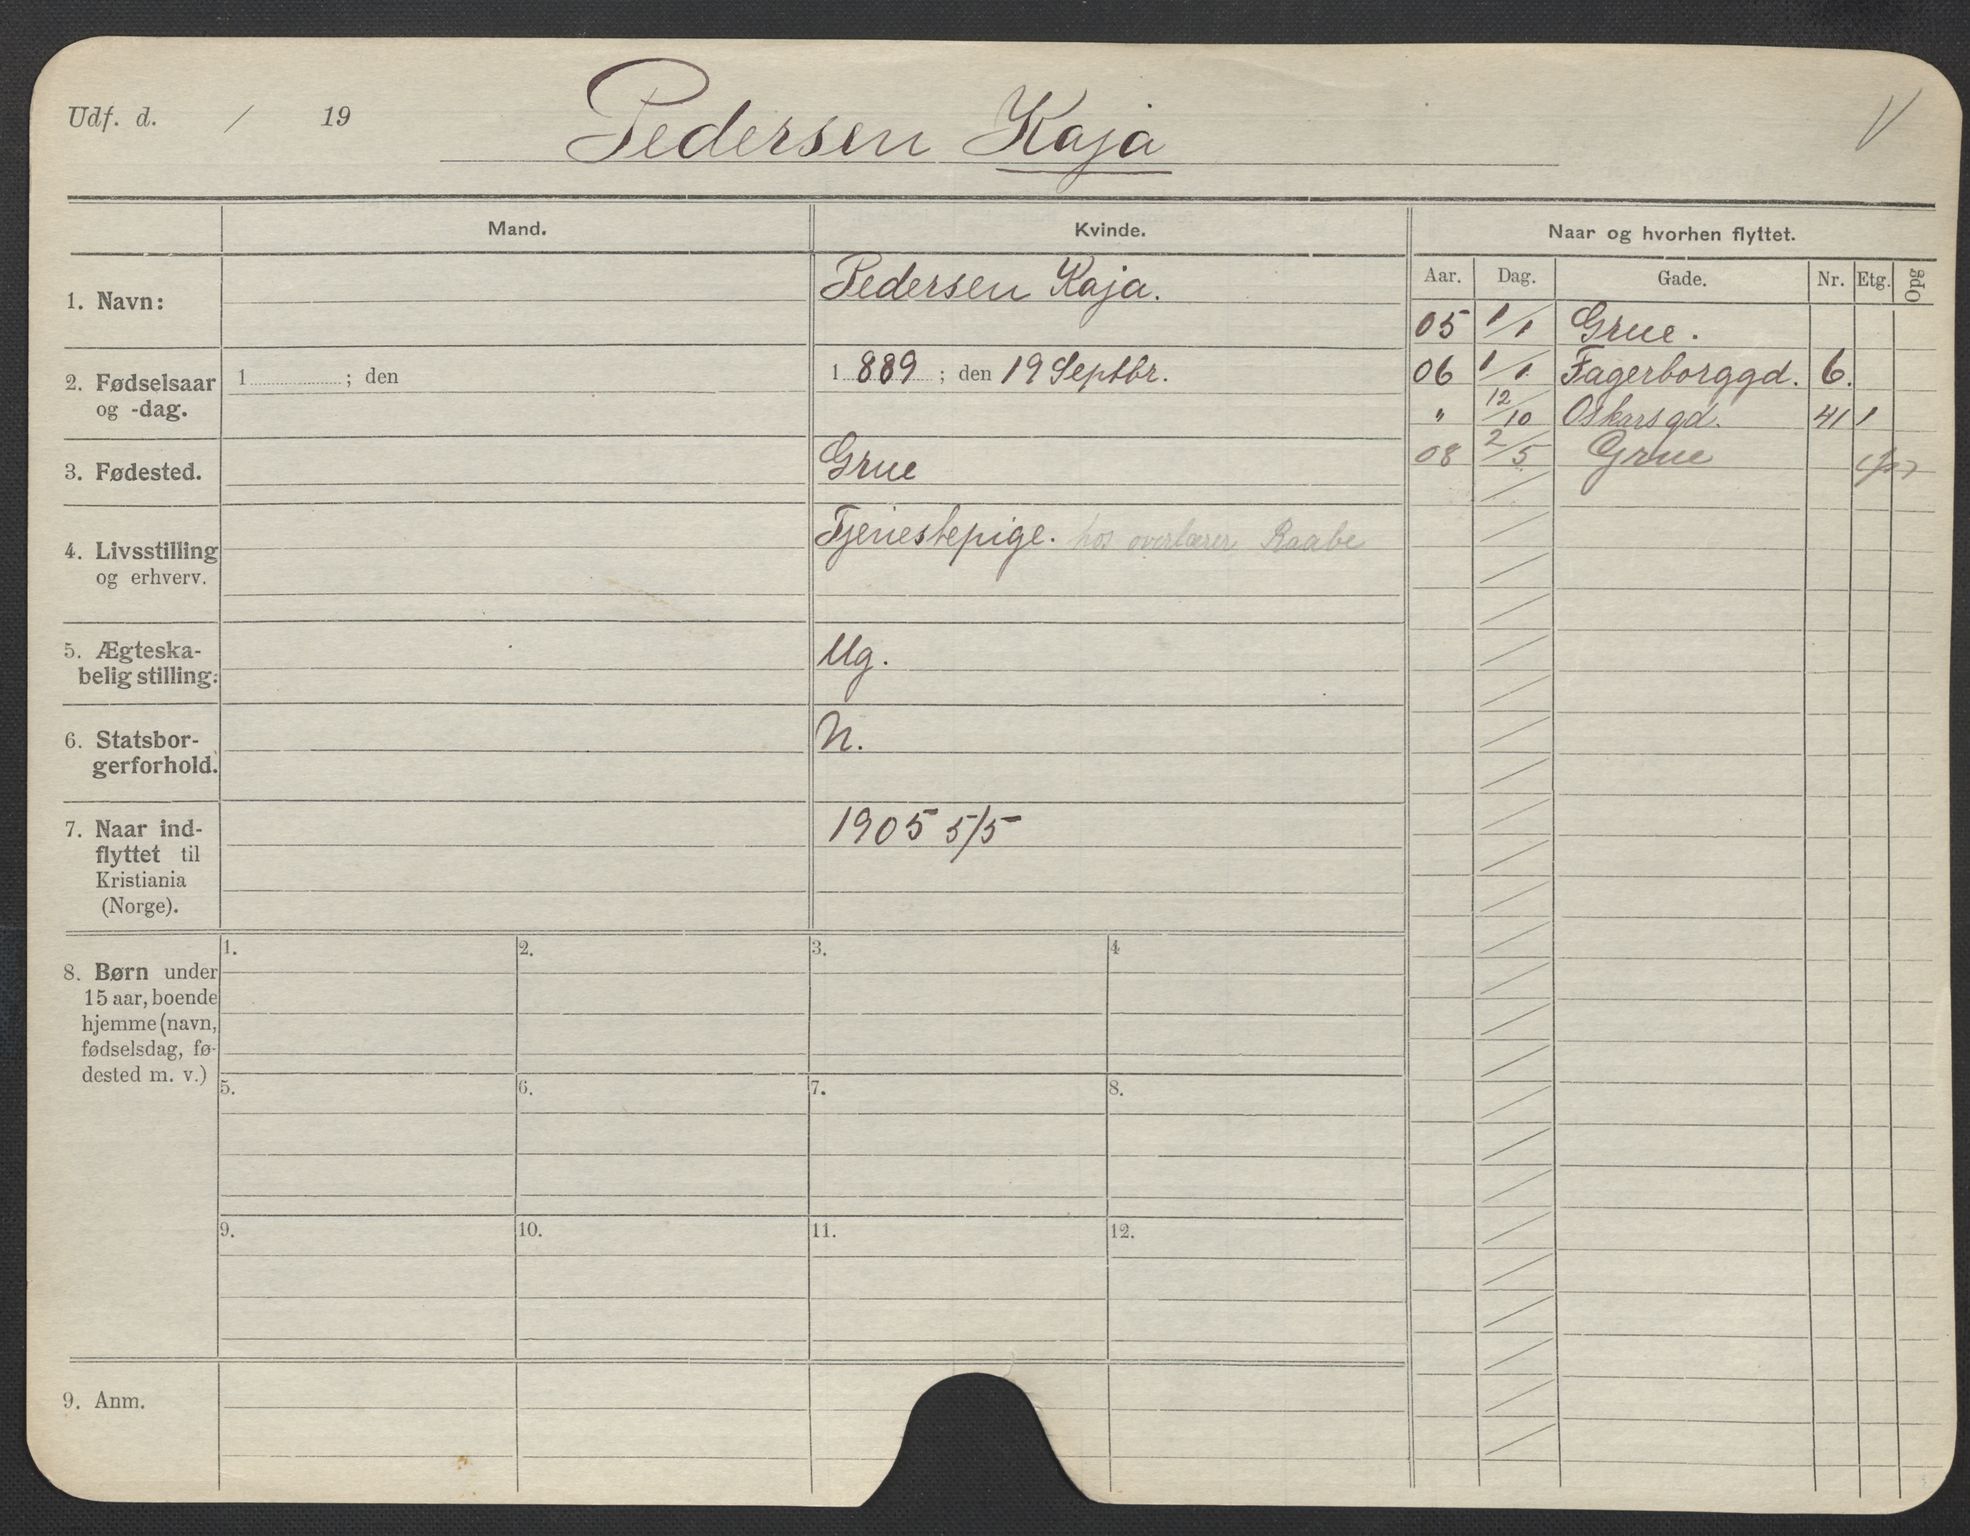 Udf. d. / 19
Pedersen Kaja
Mand.
Kvinde.
Naar og hvorhen flyttet.
Aar. Dag. Gade. Nr. Etg. Opg
1. Navn:
Pedersen Kaja.
05 1/1 Grue.
06 1/1 Fagerborggd. 6.
" 12/10 Oskarsgd. 41 1
08 2/5 Grue
2. Fødselsaar
og -dag.
1 ; den
1889 ; den 19 Septbr.
3. Fødested.
Grue
4. Livsstilling
og erhverv.
Tjenestepige. hos overlærer Raabe
5. Ægteska-
belig stilling:
Ug.
6. Statsbor-
gerforhold.
N.
7. Naar ind-
flyttet til
Kristiania
(Norge).
1905 5/5
8. Børn under
15 aar, boende
hjemme (navn,
fødselsdag, fø-
dested m. v.)
1. 2. 3. 4
5. 6. 7. 8.
9. 10. 11. 12.
9. Anm.